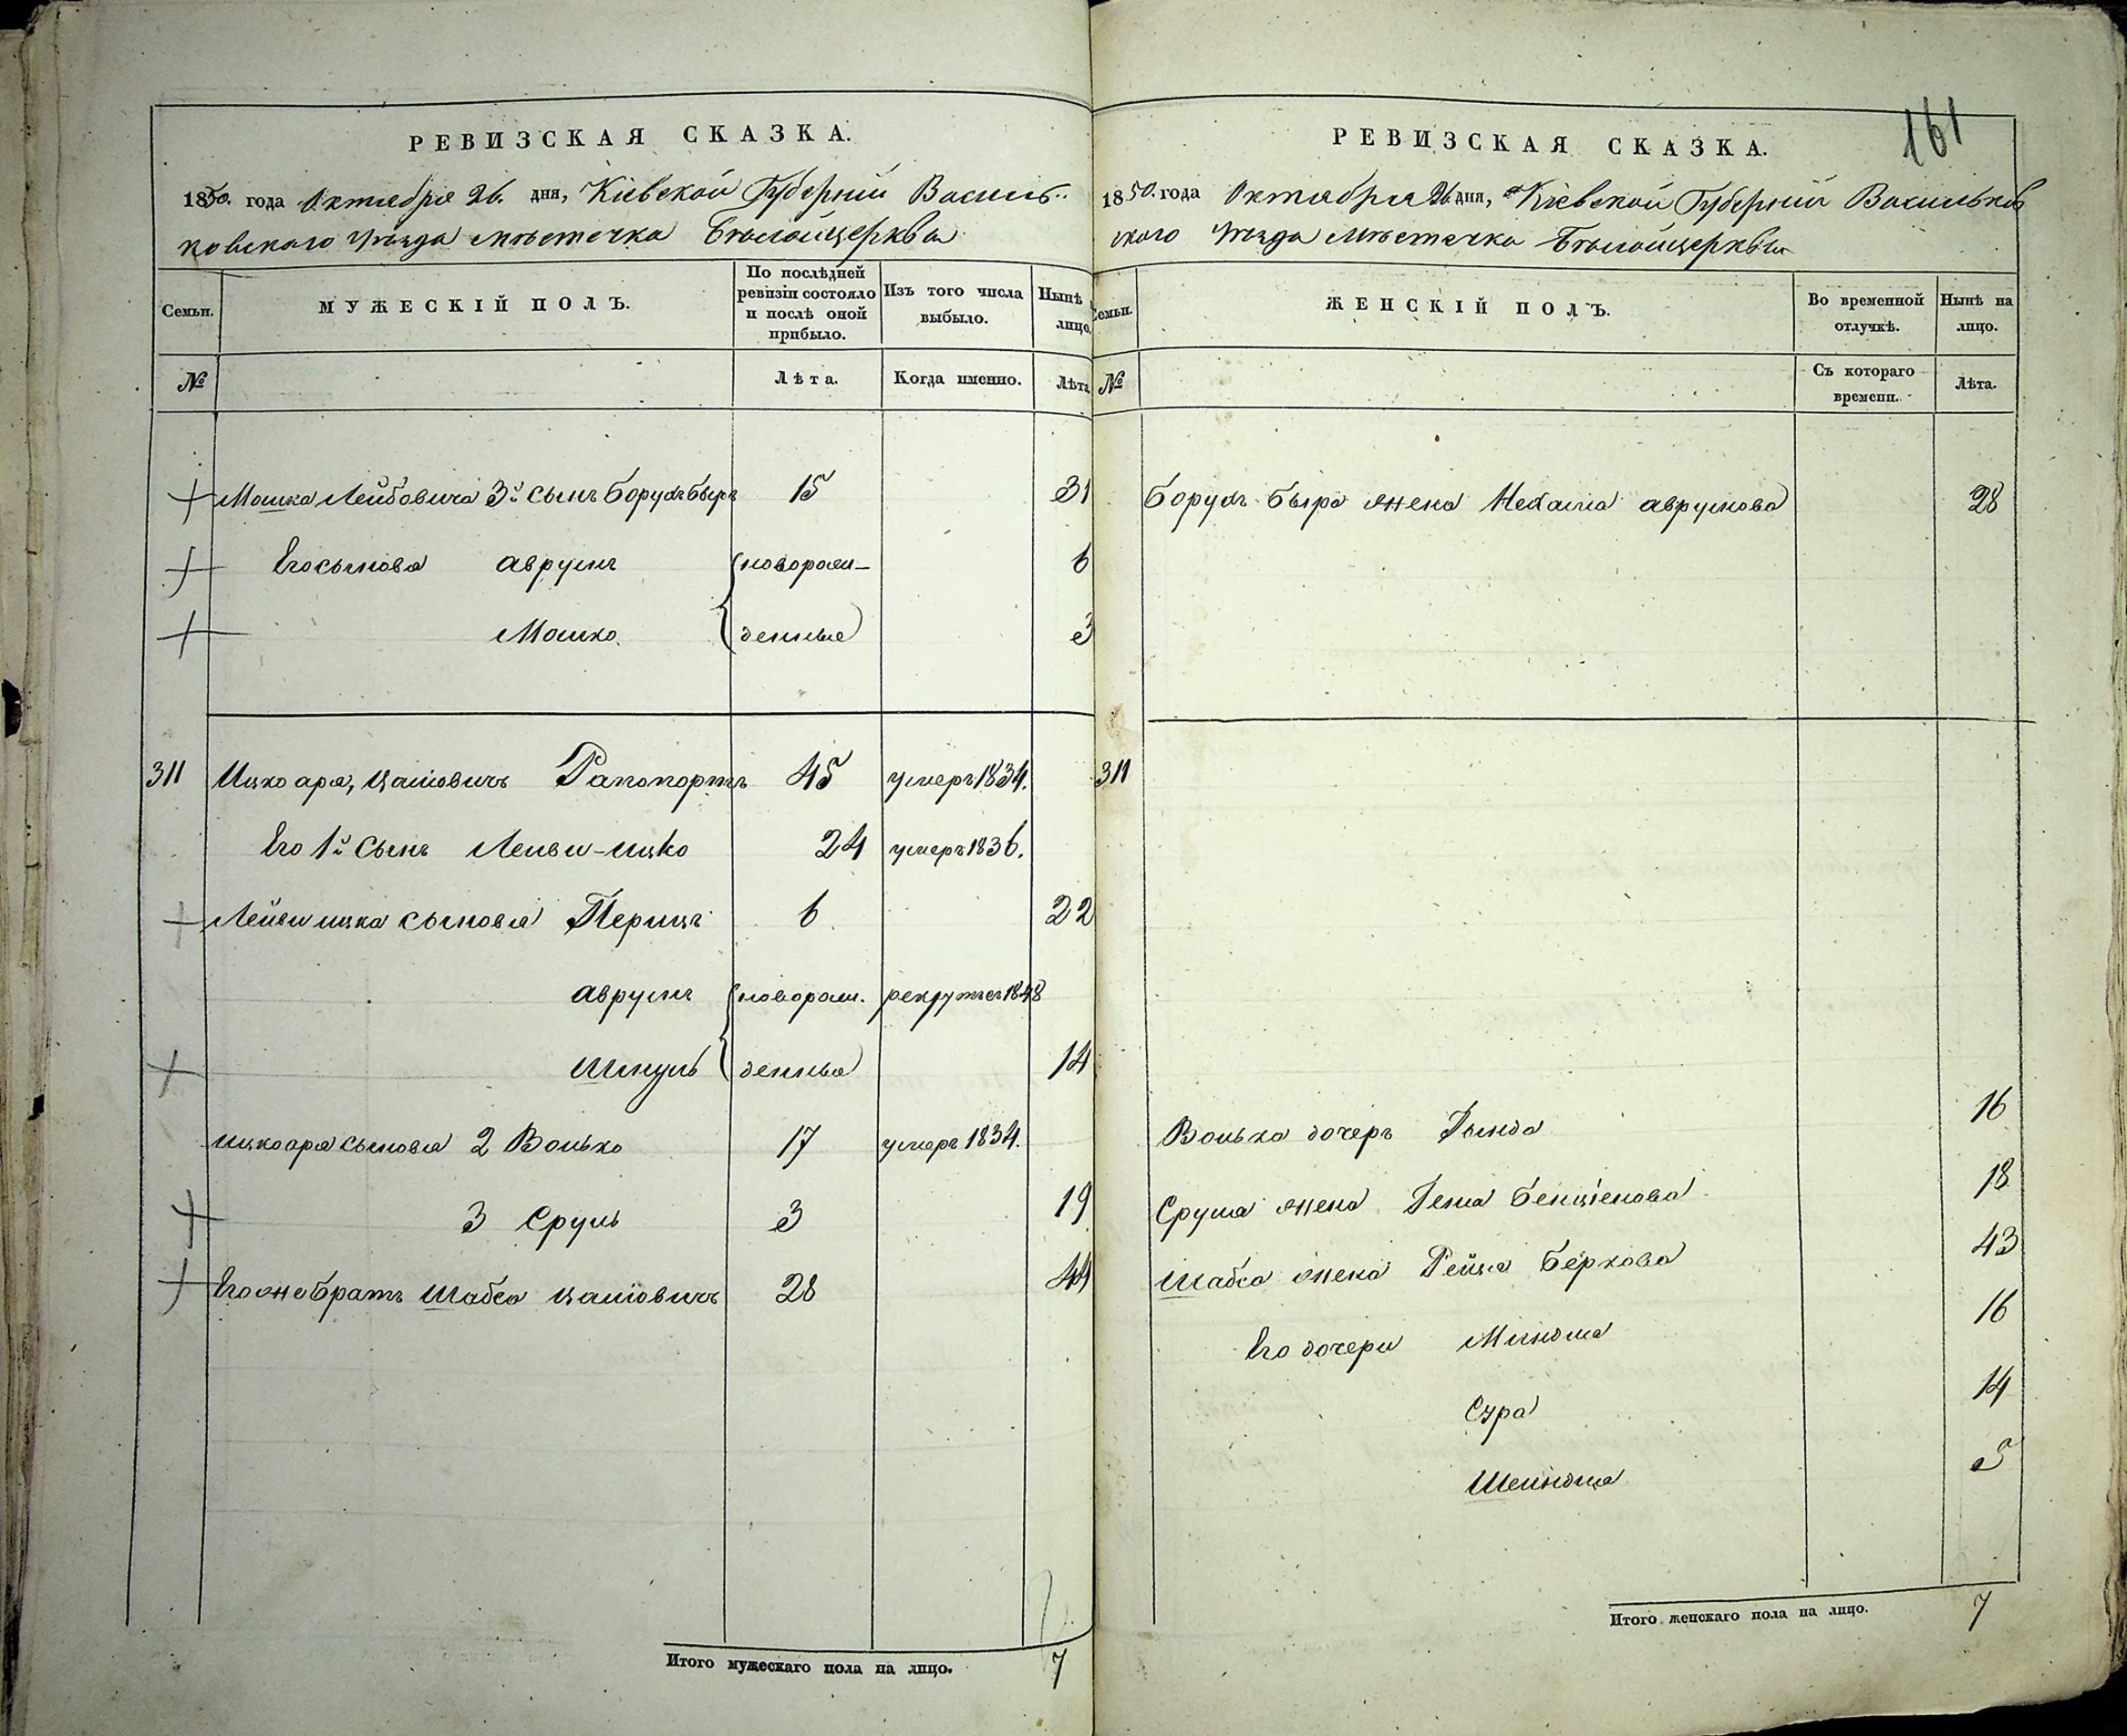 РЕВИЗСКАЯ СКАЗКА.
1850. года Октября 26. дня, Кіевской Губерніи Василь-
ковскаго уѣзда мѣстечка Бѣлойцеркви
Семьи.
МУЖЕСКІЙ ПОЛЪ.
По послѣдней ревизіи состояло и послѣ оной прибыло.
Изъ того числа выбыло.
Нынѣ лицо.
№
Лѣта.
Когда именно.
Лѣта
Мошка Лейбовича 3й сынъ Борухъ Быръ 15 31
Его сыновя Аврумъ новорож- 6
Мошко денные 3
311 Ицко Ара, Цаліовичъ Рапопортъ 45 умеръ 1834.
Его 1й сынъ Лейви-Ицко 24 умеръ 1836.
Лейви ицка сыновя Перицъ 6 22
Аврумъ новорож. рекрутъ 1848
Шмуль денные 14
ицко ара сыновя 2 Волько 17 умеръ 1834.
3 Сруль 3 19
Его же братъ Шабса Цаліовичъ 28 44
Итого мужескаго пола на лицо. 7
161
РЕВИЗСКАЯ СКАЗКА.
1850. года Октября 26 дня, Кіевской Губерніи Васильков
скаго уѣзда мѣстечка Бѣлойцеркви
Семьи.
ЖЕНСКІЙ ПОЛЪ.
Во временной отлучкѣ.
Нынѣ на лицо.
№
Съ котораго времени.
Лѣта.
Борухъ Быра жена Нехама Аврумова 28
311
Волька дочеръ Гында 16
Сруля жена Геня Бенціенова 18
Шабса жена Рейзя Беркова 43
Его дочери Миндля 16
Сура 14
Шейндля 5
Итого женскаго пола на лицо. 7